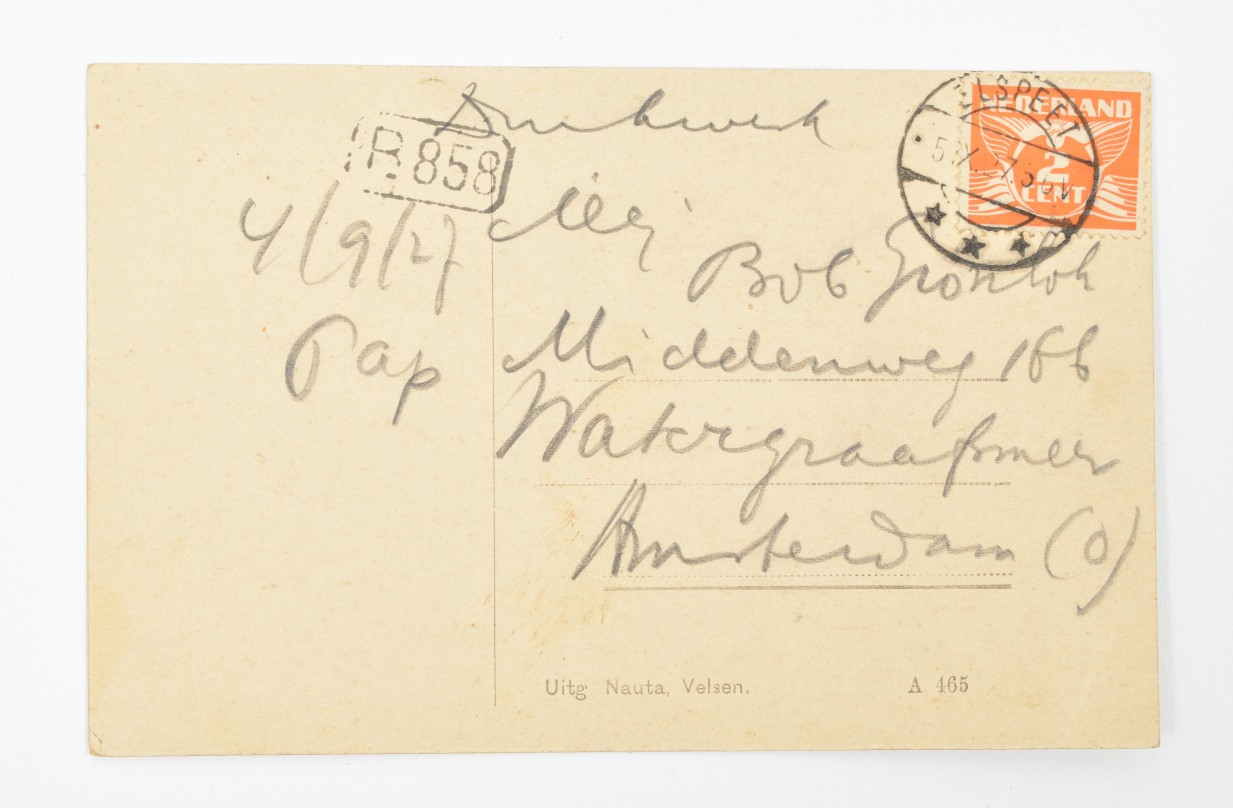 Drukwerk
R 858
4/9/27
Pap
Mej
Bob
Middenweg 166
Watergraafsmeer
Amsterdam (O)
Uitg Nauta, Velsen.
A 465
ELSPEET
NEDERLAND
2
CENT